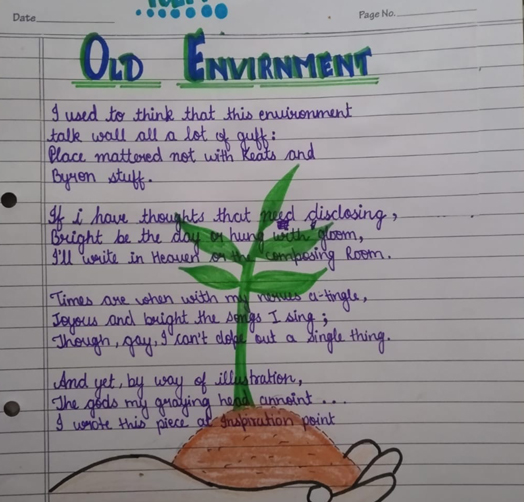 Date
Page No.
OLD ENVIRNMENT
I used to think that this environment
talk wall all a lot of guff:
Place mattered not with Keats and
Byron stuff.
If i have thoughts that need disclosing,
Bright be the day or hung with gloom,
I'll write in Heaven or the composing Room.
Times are when with my nerves a-tingle,
Joyous and bright the songs I sing;
Though, gay, I can't dope out a single thing.
And yet, by way of illustration,
The gods my graying head annoint ...
I wrote this piece at Inspiration point